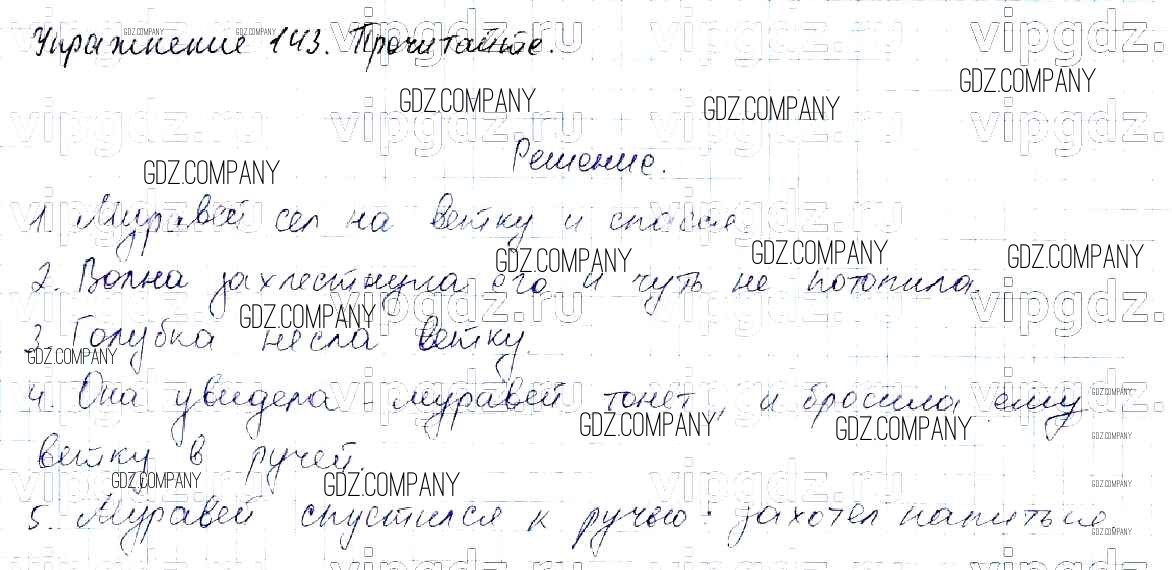 Упражнение 143. Прочитайте.
Решение.
1. Муравей сел на ветку и спасся.
2. Волна захлестнула его и чуть не потопила.
3. Голубка несла ветку.
4. Она увидела - муравей тонет, и бросила ему
ветку в ручей.
5. Муравей спустился к ручью: захотел напиться.
GDZ.COMPANY
vipgdz.ru